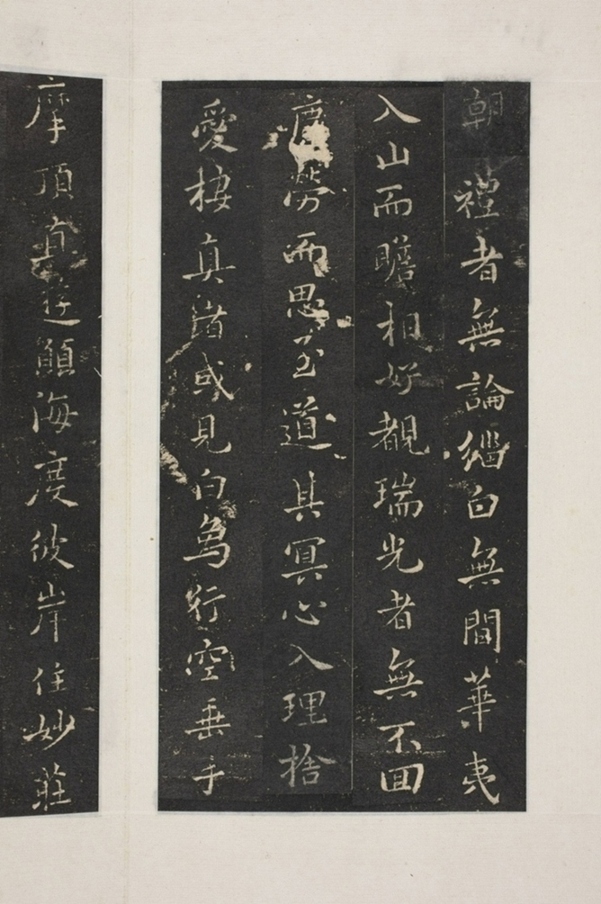 朝禮者無論緇白無間華夷
入山而瞻相好覩瑞光者無不回
塵勞而思至道其冥心入理捨
愛棲真者或見白鳥行空垂手
摩頂直逰願海度彼岸住妙莊